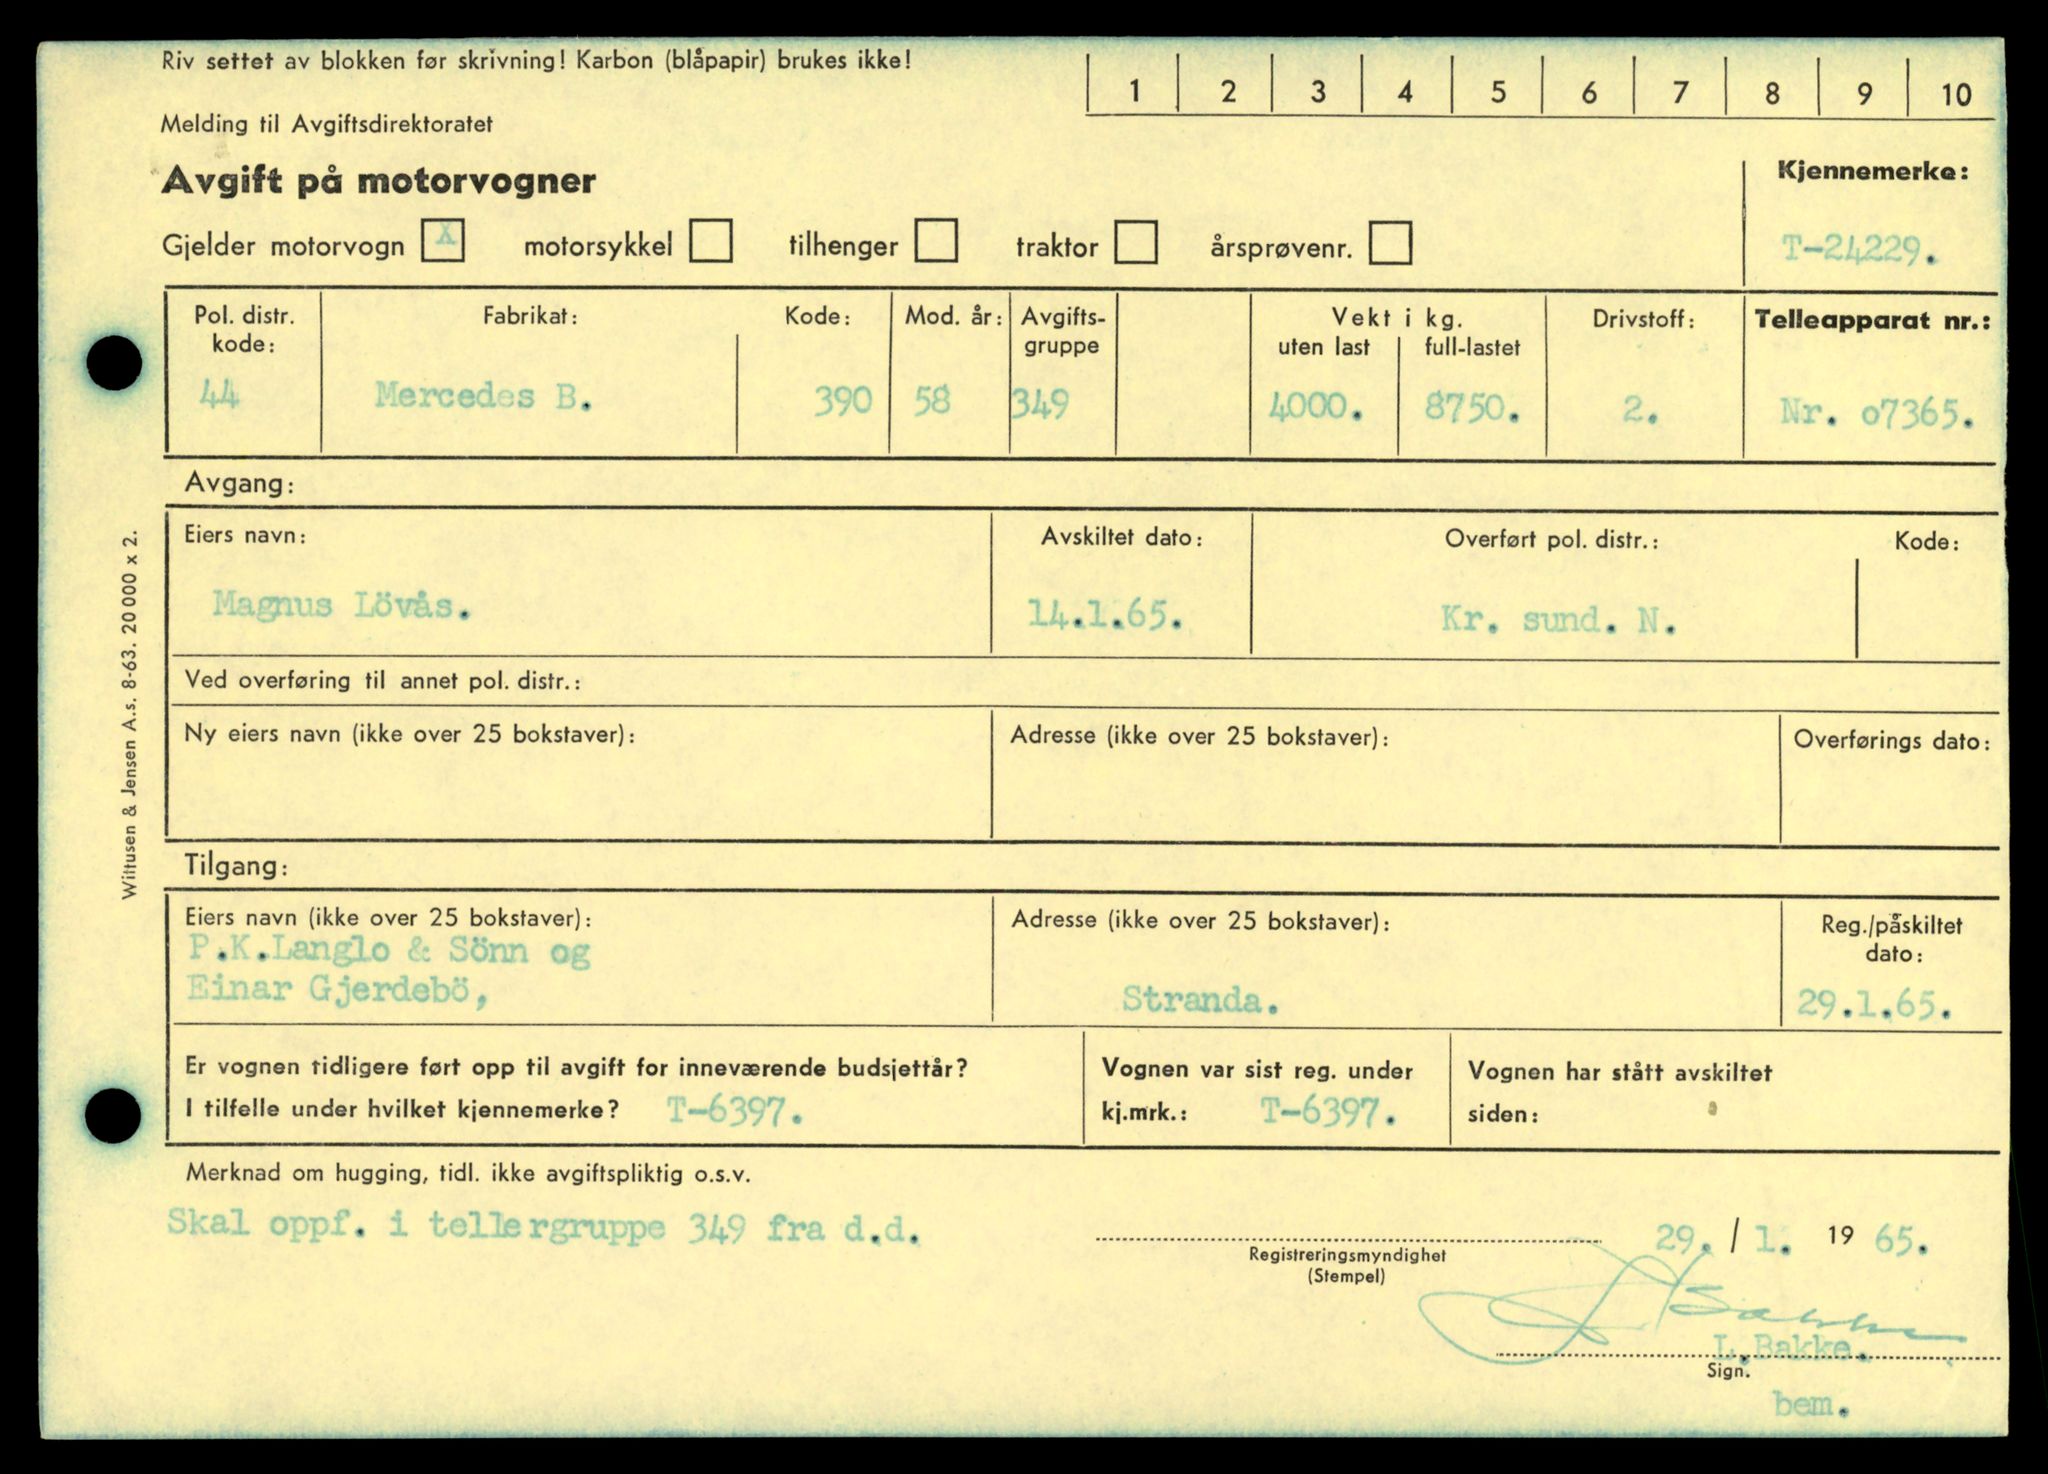 Riv settet av blokken før skrivning! Karbon (blåpapir) brukes ikke!
1 2 3 4 5 6 7 8 9 10
Melding til Avgiftsdirektoratet
Avgift på motorvogner
Kjennemerke:
Gjelder motorvogn X motorsykkel tilhenger traktor årsprøvenr.
T-24229.
Pol. distr. kode:
Fabrikat:
Kode:
Mod. år:
Avgifts-
gruppe
Vekt i kg.
uten last
full-lastet
Drivstoff:
Telleapparat nr.:
44 Mercedes B. 390 58 349 4000. 8750. 2. Nr. o7365.
Avgang:
Eiers navn:
Avskiltet dato:
Overført pol. distr.:
Kode:
Magnus Lövås. 14.1.65. Kr. sund. N.
Ved overføring til annet pol. distr.:
Ny eiers navn (ikke over 25 bokstaver):
Adresse (ikke over 25 bokstaver):
Overførings dato:
Tilgang:
Eiers navn (ikke over 25 bokstaver):
Adresse (ikke over 25 bokstaver):
Reg./påskiltet
dato:
P.K.Langlo & Sönn og
Einar Gjerdebö,
Stranda.
29.1.65.
Er vognen tidligere ført opp til avgift for inneværende budsjettår?
I tilfelle under hvilket kjennemerke? T-6397.
Vognen var sist reg. under
kj.mrk.: T-6397.
Vognen har stått avskiltet
siden:
Merknad om hugging, tidl. ikke avgiftspliktig o.s.v.
Skal oppf. i tellergruppe 349 fra d.d.
29. / 1. 19 65.
Registreringsmyndighet
(Stempel)
L Bakke
L.Bakke.
Sign.
bem.
Wittusen & Jensen A.s. 8-63. 20 000 x 2.